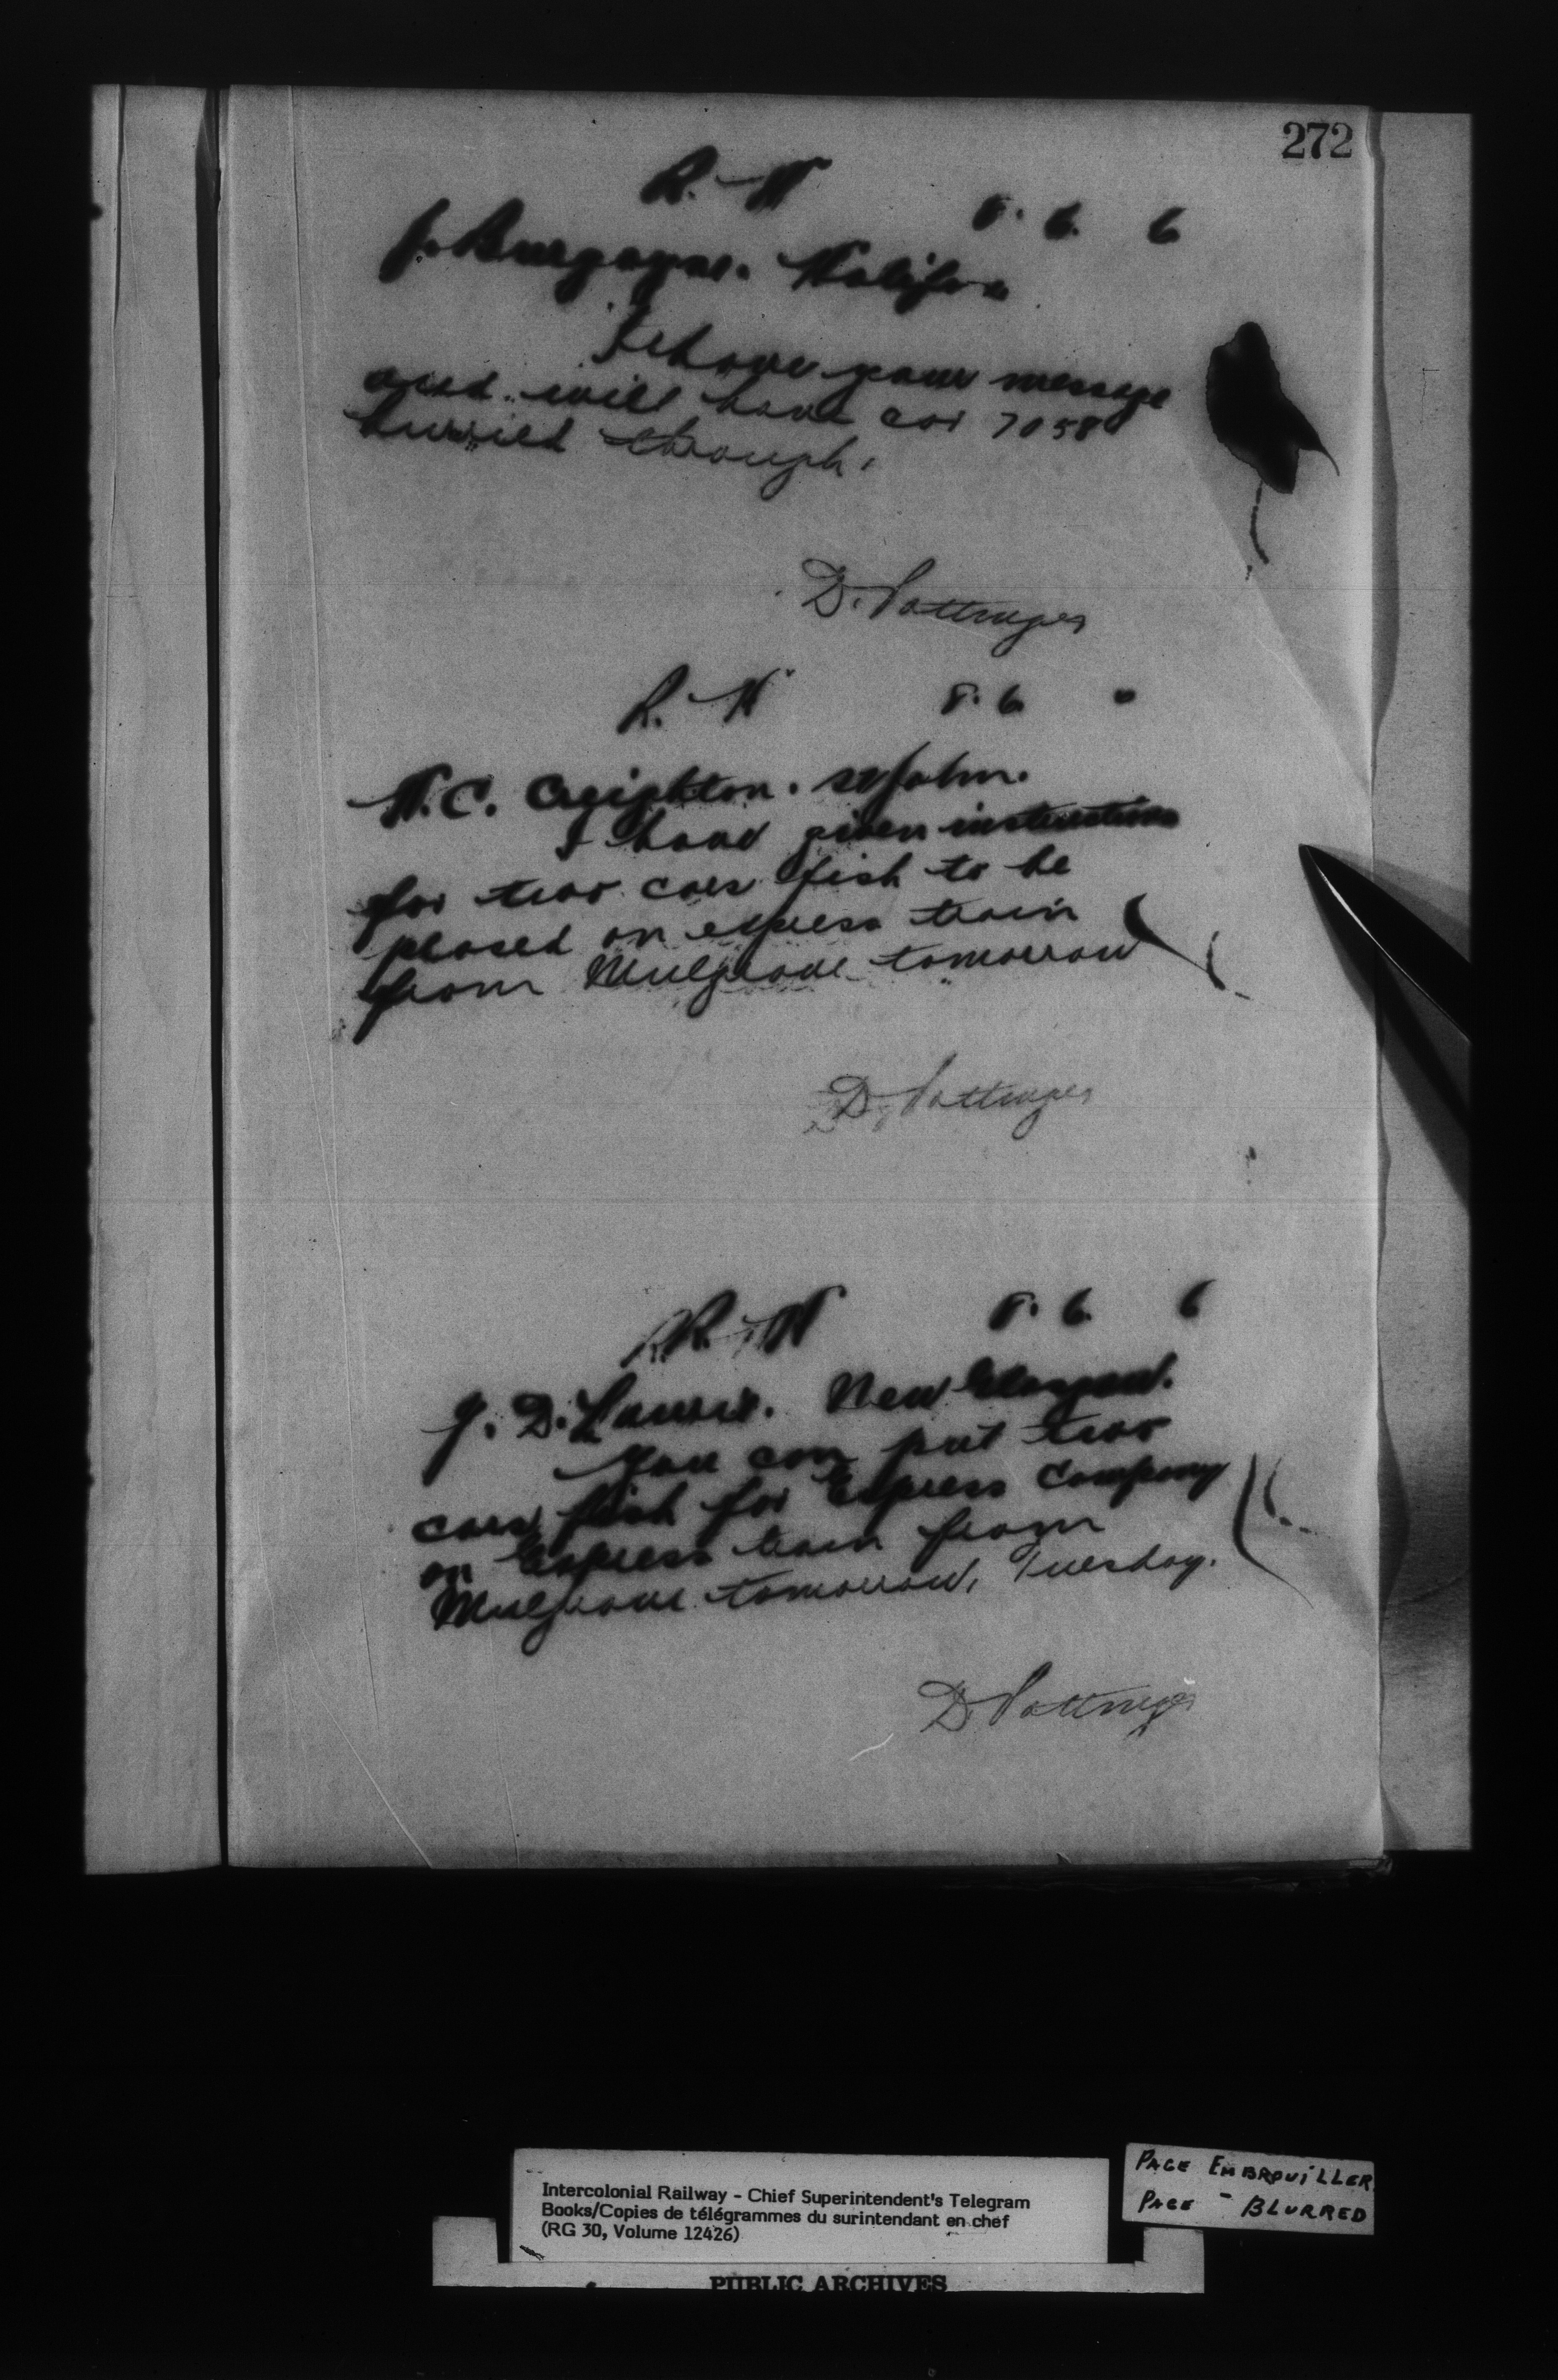 272
R. H 8. 6. 6
J. Burgoyne. Halifax
I have your message
and will have car 7058
hurried through.
D. Pottinger
R. H 8. 6 "
H. C. Creighton. St John.
I have given instructions
for two cars fish to be
placed on express train
from Mulgrave tomorrow
D. Pottinger
R. H 8. 6. 6
J. D. Lawrie. New Glasgow.
You can put two
cars fish for Express Company
on Express train from
Mulgrave tomorrow, Tuesday.
D Pottinger
Intercolonial Railway - Chief Superintendent's Telegram
Books/Copies de télégrammes du surintendant en chef
(RG 30, Volume 12426)
PAGE EMBROUILLER
PAGE - BLURRED
PUBLIC ARCHIVES